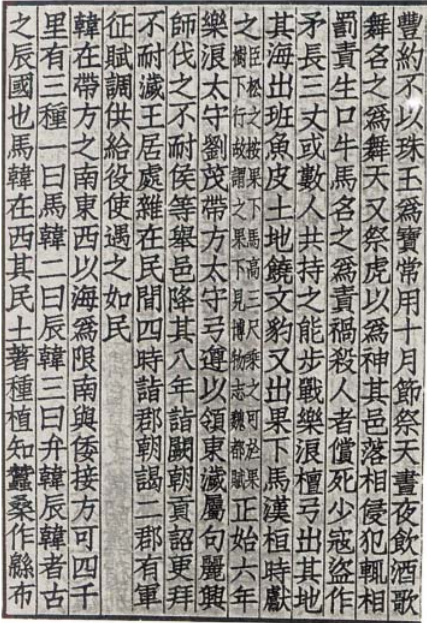 豐約不以珠玉爲寶常用十月節祭天晝夜飲酒歌
舞名之爲舞天又祭虎以爲神其邑落相侵犯輒相
罰責生口牛馬名之爲責禍殺人者償死少寇盜作
矛長三丈或數人共持之能步戰樂浪檀弓出其地
其海出班魚皮土地饒文豹又出果下馬漢桓時獻
之臣松之按果下馬高三尺乘之可於果樹下行故謂之果下見博物志魏都賦正始六年
樂浪太守劉茂帶方太守弓遵以領東濊屬句麗興
師伐之不耐侯等舉邑降其八年詣闕朝貢詔更拜
不耐濊王居處雜在民間四時詣郡朝謁二郡有軍
征賦調供給役使遇之如民
韓在帶方之南東西以海爲限南與倭接方可四千
里有三種一曰馬韓二曰辰韓三曰弁韓辰韓者古
之辰國也馬韓在西其民土著種植知蠶桑作緜布